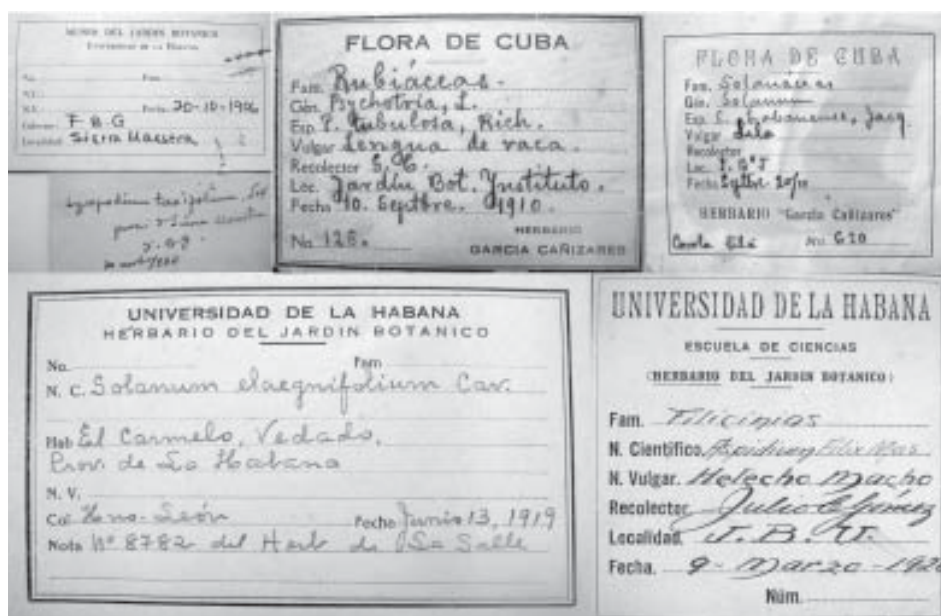 MUSEO DEL JARDIN BOTANICO
UNIVERSIDAD DE LA HABANA
No. Fam.
N.C.
N.V. Fecha 20-10-1906
F B G
Localidad Sierra Maestra
FLORA DE CUBA
Fam. Rubiáceas.
Gén. Psychotria, L.
Esp. P. tubulosa, Rich.
Vulgar Lengua de vaca.
Recolector G. C.
Loc. Jardín Bot. Instituto.
Fecha 10. Septbre. 1910.
No 128.
HERBARIO
GARCIA CAÑIZARES
FLORA DE CUBA
Fam. Solanáceas
Gén. Solanum
Esp. S. Jacq.
Vulgar
Recolector
Loc.
Fecha Sptbre 20/10
HERBARIO "García Cañizares"
No. 620
UNIVERSIDAD DE LA HABANA
HERBARIO DEL JARDIN BOTANICO
No. Fam
N. C. Solanum elaegnifolium Cav.
Hab El Carmelo, Vedado,
Prov. de La Habana
N. V.
Col Hno. León Fecha Junio 13, 1919
Nota Nº 8782 del Herb de La Salle
UNIVERSIDAD DE LA HABANA
ESCUELA DE CIENCIAS
(HERBARIO DEL JARDIN BOTANICO)
Fam. Filicinias
N. Científico. Aspidium Filix Mas
N. Vulgar. Helecho Macho
Recolector Julio C Gómez
Localidad. J. B. U.
Fecha. 9- Marzo-192
Núm.